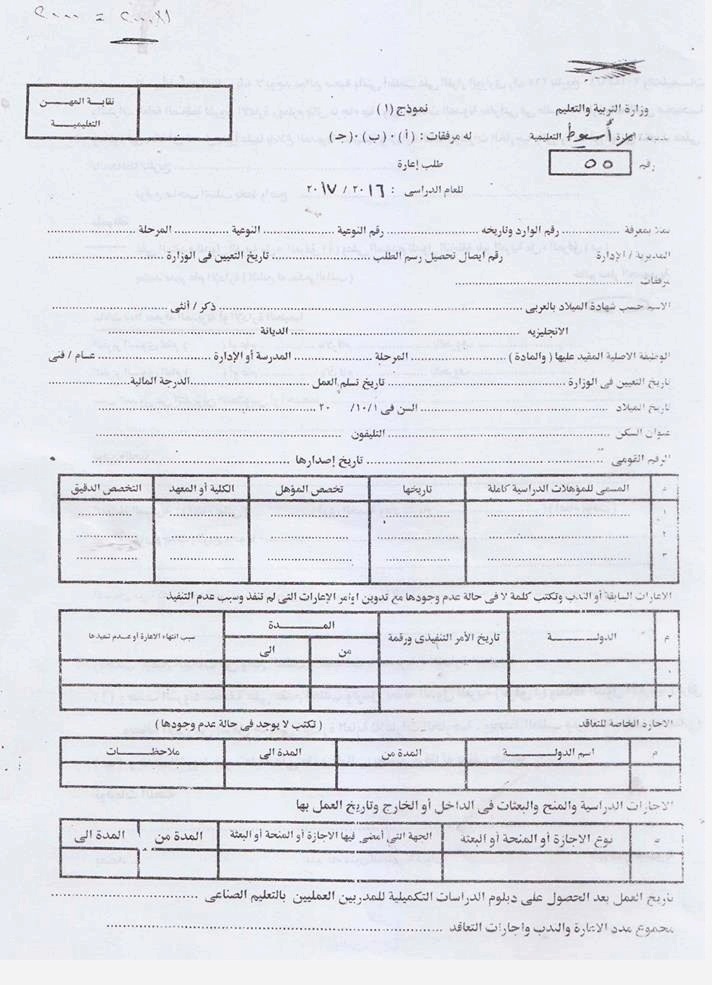 ٢٠٠٠ =
وزارة التربية والتعليم
نموذج (١)
نقابة المهـن التعليمية
إدارة أسيوط التعليمية
له مرفقات : (أ) ، (ب) ، (جـ)
رقم ٥٥
طلب إعارة
للعام الدراسى : ٢٠١٦ / ٢٠١٧
يملأ بمعرفة ........ رقم الوارد وتاريخه ........ رقم النوعية ........ النوعية ........ المرحلة ........
المديرية / الإدارة ........ رقم ايصال تحصيل رسم الطلب ........ تاريخ التعيين فى الوزارة ........
مرفقات ........
الاسم حسب شهادة الميلاد بالعربى ........ ذكر / أنثى ........
الانجليزيه ........ الديانة ........
الوظيفة الاصلية المقيد عليها ( والمادة ) ........ المرحلة ........ المدرسة أو الإدارة ........ عـام / فنى
تاريخ التعيين فى الوزارة ........ تاريخ تسلم العمل ........ الدرجة المالية ........
تاريخ الميلاد ........ السن فى ١٠/١/ ٢٠ ........
عنوان السكن ........ التليفون ........
الرقم القومى ........ تاريخ إصدارها ........
م المسمى للمؤهلات الدراسية كاملة تاريخها تخصص المؤهل الكلية أو المعهد التخصص الدقيق
١
٢
٣
الاعارات السابقة أو الندب وتكتب كلمة لا فى حالة عدم وجودها مع تدوين اوامر الإعارات التى لم تنفذ وسبب عدم التنفيذ
م الدولـــــة تاريخ الأمر التنفيذى ورقمة المــــدة سبب انتهاء الاعارة أو عـدم تنفيذها
من الى
الاجازه الخاصة للتعاقد ( تكتب لا يوجد فى حالة عدم وجودها )
م اسم الدولـــــة المدة من المدة الى ملاحظـــات
الاجازات الدراسية والمنح والبعثات فى الداخل أو الخارج وتاريخ العمل بها
م نوع الاجازة أو المنحة أو البعثه الجهة التى أمضى فيها الاجازة أو المنحة أو البعثة المدة من المدة الى
تاريخ العمل بعد الحصول على دبلوم الدراسات التكميلية للمدربين العمليين بالتعليم الصناعى ........
مجموع مدد الاعارة والندب واجازات التعاقد ........